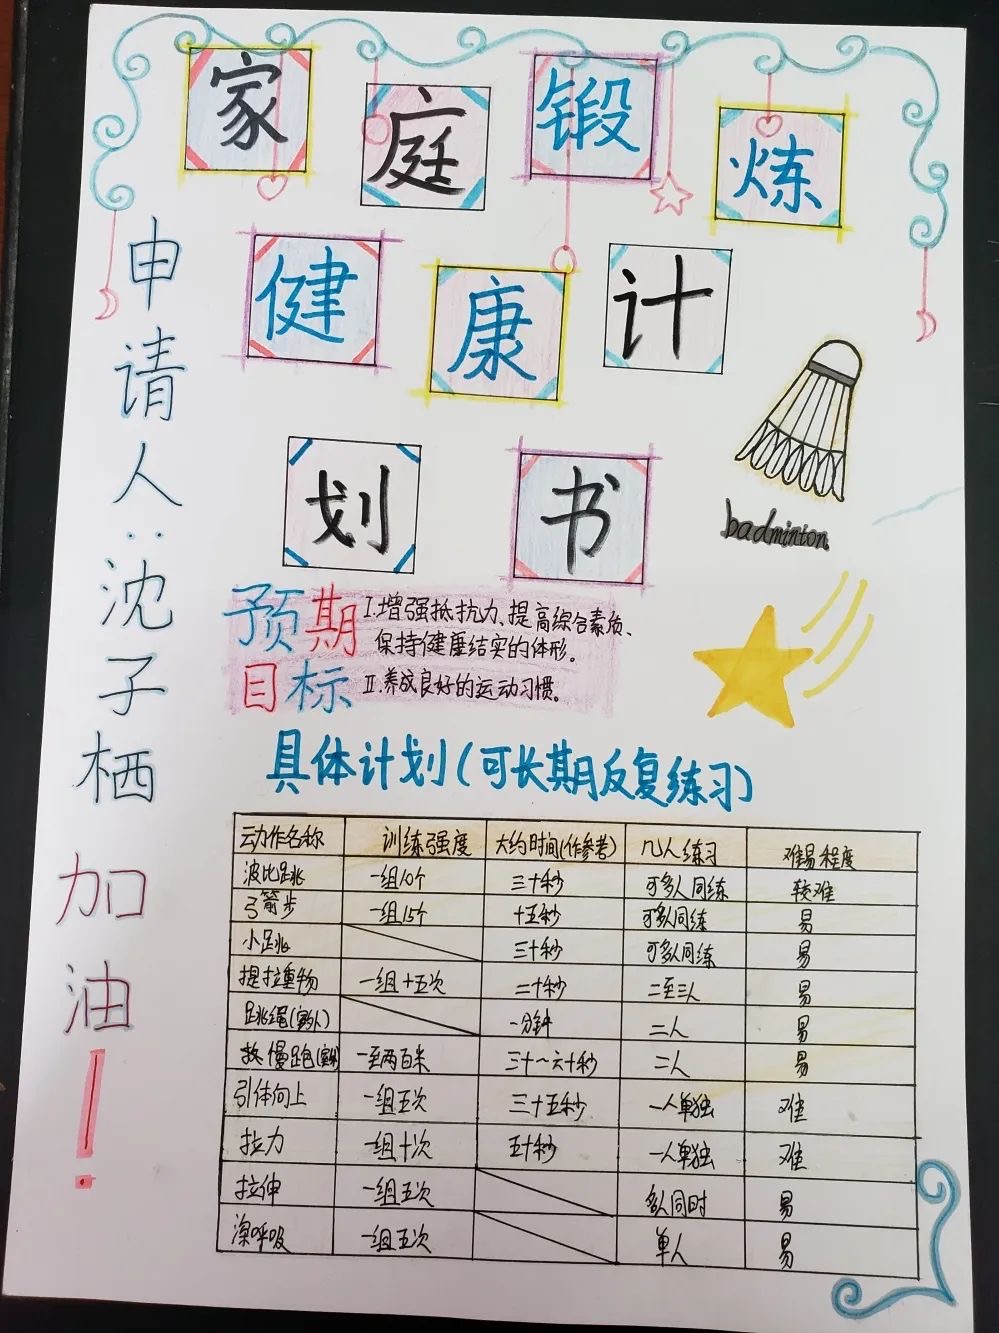 家庭锻炼
健康计
划书
申请人:沈子栖 加油!
badminton
预期目标
I.增强抵抗力、提高综合素质、
保持健康结实的体形。
II.养成良好的运动习惯。
具体计划(可长期反复练习)
动作名称 训练强度 大约时间(作参考) 几人练习 难易程度
波比跳 一组10个 三十秒 可多人同练 较难
弓箭步 一组15个 十五秒 可多人同练 易
小跳 三十秒 可多人同练 易
提拉重物 一组十五次 二十秒 二至三人 易
跳绳(室外) 一分钟 二人 易
慢跑(室外) 一至两百米 三十~六十秒 二人 易
引体向上 一组五次 三十五秒 一人单独 难
拉力 一组十次 五十秒 一人单独 难
拉伸 一组五次 多人同时 易
深呼吸 一组五次 单人 易